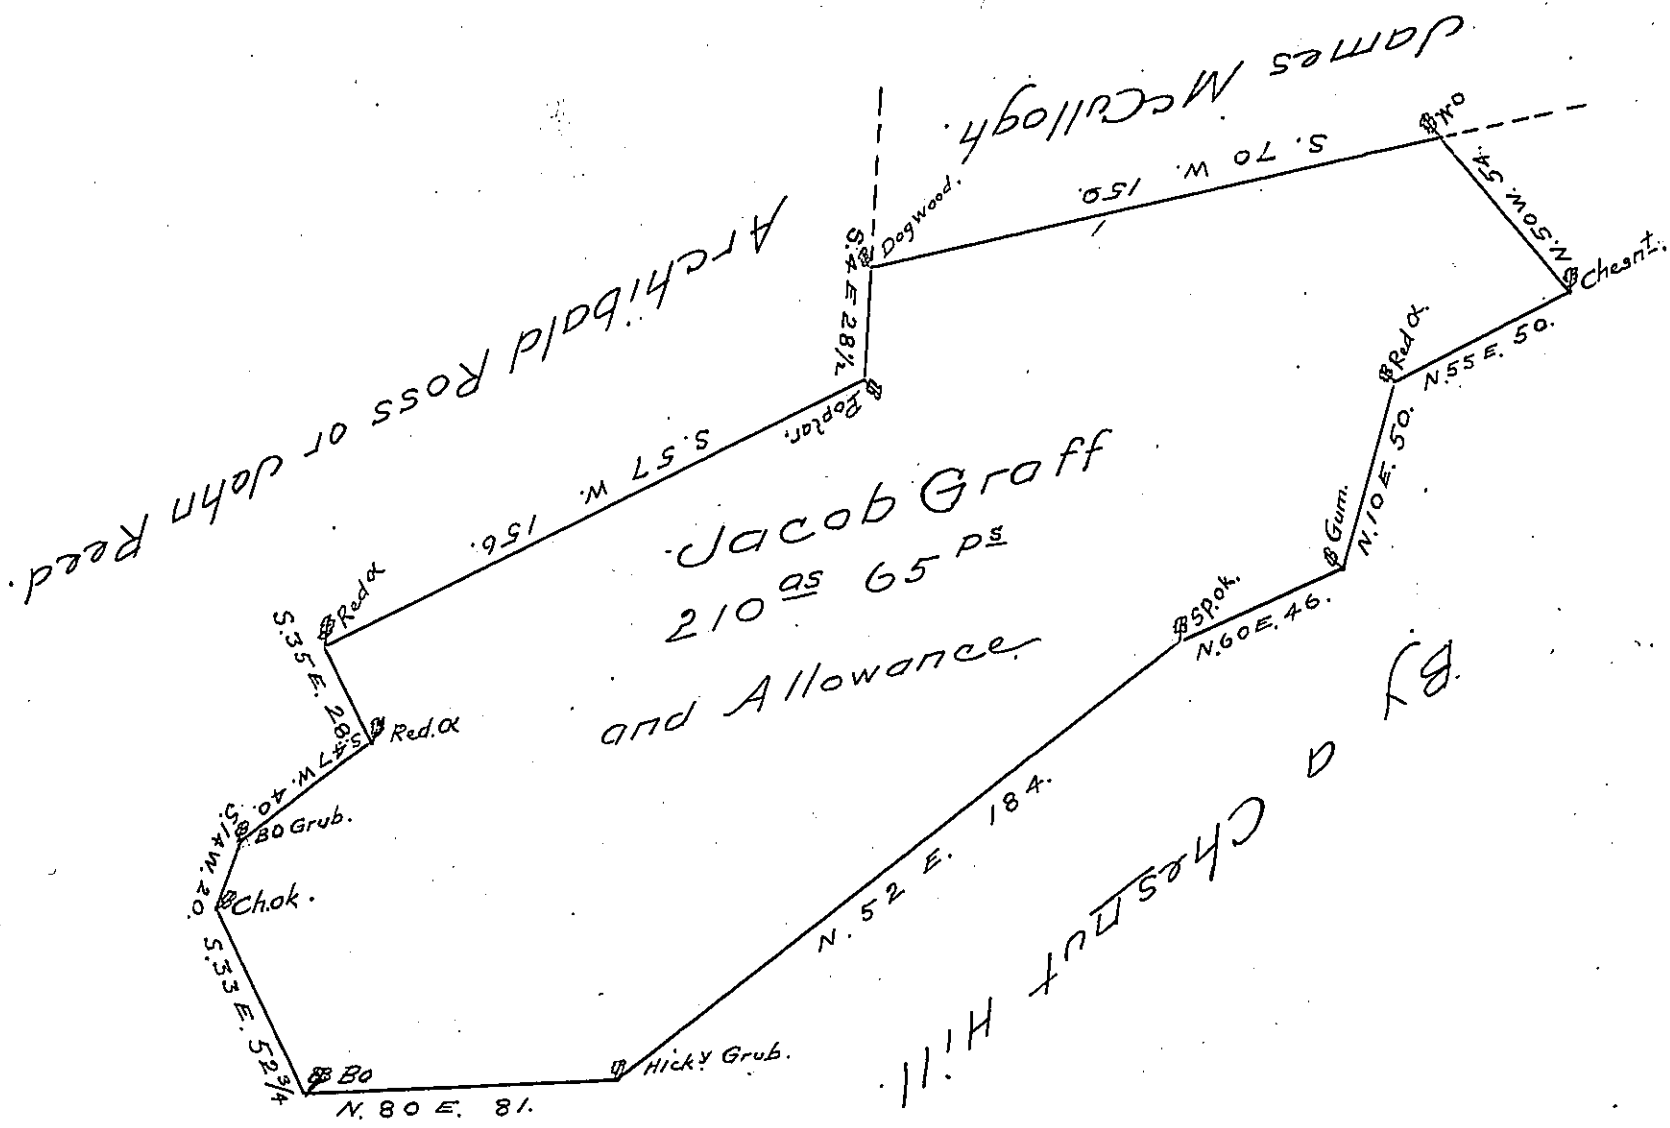 James McCullogh.
Archibald Ross or John Reed.
Jacob Graff
210 as 65 ps
and Allowance
By a Chesnut Hill.
Dogwood.
S. 70 W. 150.
WO
N. 50 W. 54.
Chesnt.
N. 55 E. 50.
Red α.
N. 10 E. 50.
Gum.
N. 60 E. 46.
SP. ok.
N. 52 E. 184.
Hicky Grub.
N. 80 E. 81.
BO
S. 33 E. 52 3/4
Ch. ok.
S. 14 W. 20.
BO Grub.
S. 47 W. 40.
Red. α
S. 35 E. 28.
Red α
S. 57 W. 156.
Poplar.
S. 4 E 28 1/2